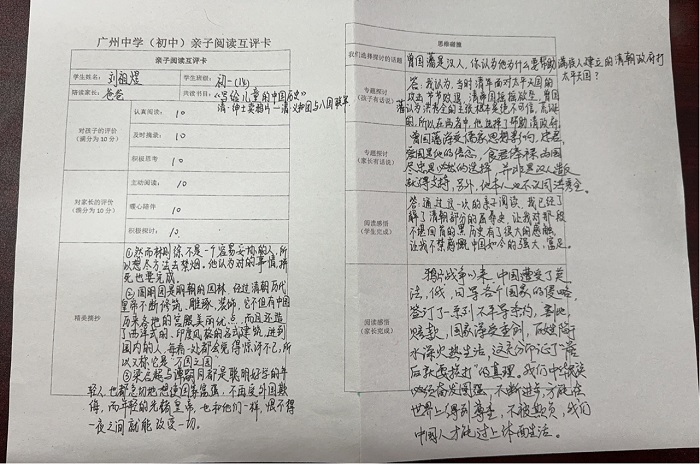 广州中学（初中）亲子阅读互评卡
亲子阅读互评卡
学生姓名： 刘祖煜 学生班级： 初一(14)
陪读家长： 爸爸 共读书目： 《写给儿童的中国历史》
清·绅士卖鸦片—清·义和团与八国联军
对孩子的评价
（满分为10分）
认真阅读： 10
及时摘录： 10
积极思考： 10
对家长的评价
（满分为10分）
主动阅读： 10
暖心陪伴 10
积极探讨： 10
精美摘抄
①然而林则徐不是一个容易妥协的人，所
以想尽方法去禁烟。他认为对的事情，拼
死也要完成
②圆明园是明朝的园林，经过清朝历代
皇帝不断修筑、雕琢、装饰，它不但有中国
历来各地的宫殿美丽优点，而且还造
了西洋式的、印度风格的各式建筑，进到
园内的人，每看一处都会觉得惊讶不已，所
以又称它是“万园之园”
③梁启超与谭嗣同都是聪明好学的年
轻人，他都急切地想使国家富强，不再受外国欺
侮，而年轻的光绪皇帝，也和他们一样，恨不得
一夜之间就能改变一切。
思维碰撞
我们选择探讨的话题 曾国藩是汉人，你认为他为什么是帮助满族人建立的清朝政府打
太平天国？
专题探讨
（孩子有话说）
答：我认为，当时清军面对太平天国的
攻击节节败退，清帝国摇摇欲坠，曾国
藩认为洪秀全的上帝根本是绝不可信、荒诞
的，所以在两者中，他选择了帮助清政府。
专题探讨
（家长有话说）
曾国藩深受儒家思想影响，忠君
爱国是他的信念，食君俸禄，为国
尽忠是必然的选择，并非是汉人造反
就得支持，另外，他本人也不认同洪秀全。
阅读感悟
（学生完成）
答：通过这一次的亲子阅读，我已经了
解了清朝部分的屈辱史，让我对那段
不堪回首的黑历史有了很大的感触，
让我不禁感慨中国如今的强大，富足。
阅读感悟
（家长完成）
鸦片战争以来，中国遭受了英、
法、俄、日等各个国家的侵略，
签订了一系列不平等条约，割地、
赔款，国家深受重创，百姓陷
水深火热生活，这充分印证了“落
后就要挨打”的真理，我们中华民族
必须奋发图强，不断进步，才能在
世界上得到尊重，不被欺负，我们
中国人才能过上体面生活。